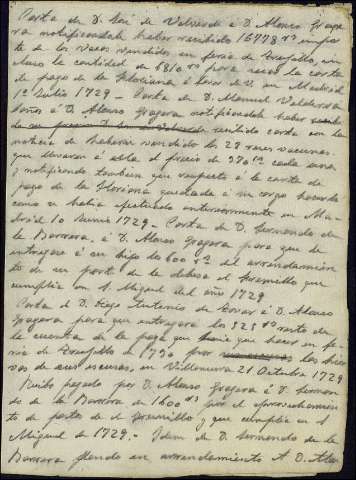 Carta de D. José de Valverde á D. Alonso Grage
ra notificandole haber recibido 16778 rs impor
te de las vacas vendidas en feria de Trujillo, in
cluso la cantidad de 6810 rs para saca la carta
de pago de la Floriana á favor de D. en Madrid
1º Julio 1729 - Carta de D. Manuel Valderra
baños á D. Alonso Gragera notificandole haber recibi
do recibido carta con la
noticia de haberse vendido las 28 reses vacunas
que llevaron á ella al precio de 270 rs cada una
y notificando tambien que respecto á la carta de
pago de la Floriana quedaba á su cargo hacerla
como se habia efectuado anteriormente en Ma-
drid 10 Junio 1729 - Carta de D. Fernando de
la Barrera, á D. Alonso Gragera para que de
entregase á su hijo los 600 rs del arrendamien
to de su parte de la dehesa el Jaramillo que
cumplia en S. Miguel del año 1729
Carta de D. Diego Antonio de Tovar á D. Alonso
Gragera para que entregara los 525 rs resto de
la cuenta de la paga que hacer en fe-
ria de Trujillo de 1730 por las hier
vas de sus escusas, en Villanueva 21 Octubre 1729
Recibo pagado por D. Alonso Gragera á D. Fernan
do de la Barrera de 1600 rs por el aprovechamien
to de pastos de el Jaramillo y que cumplia en S.
Miguel de 1729. - Idem de D. Fernando de la
Barrera dando en arrendamiento á D. Alon